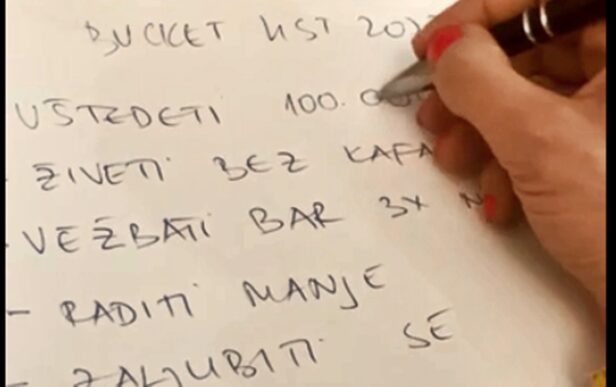 BUCKET LIST
UŠTEDETI 100.
- ŽIVETI BEZ
- VEŽBATI BAR 3X
- RADITI MANJE
- ZALJUBITI SE